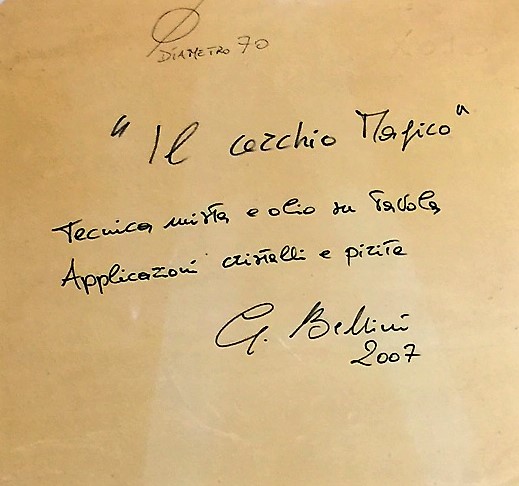 DIAMETRO 70
"Il cerchio Magico"
Tecnica mista e olio su Tavola
Applicazioni cristalli e pirite
G. Bellini
2007